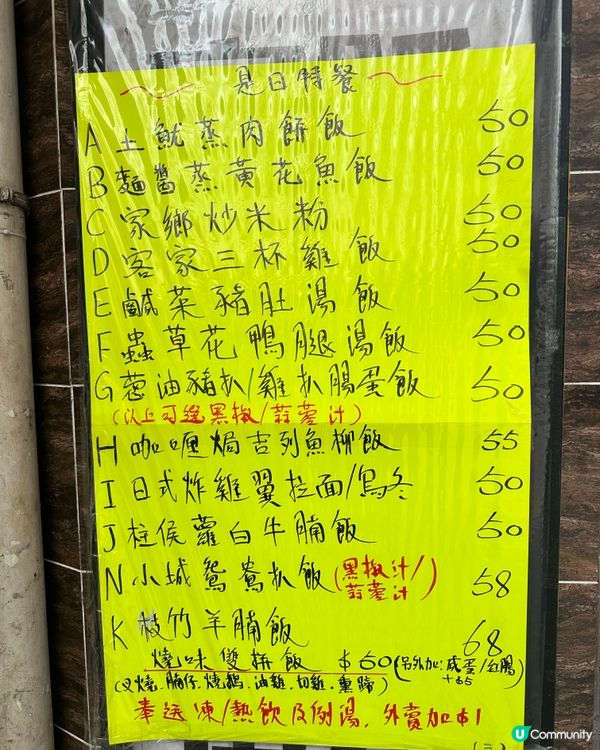 是日特餐
A 土魷蒸肉餅飯 50
B 麵醬蒸黃花魚飯 50
C 家鄉炒米粉 50
D 客家三杯雞飯 50
E 鹹菜豬肚湯飯 50
F 蟲草花鴨腿湯飯 50
G 蔥油豬扒/雞扒腸蛋飯 50
(以上可選黑椒/蒜蓉汁)
H 咖喱焗吉列魚柳飯 55
I 日式炸雞翼拉面/烏冬 50
J 柱侯蘿白牛腩飯 50
N 小城鴛鴦扒飯(黑椒汁/蒜蓉汁) 58
K 枝竹羊腩飯 68
燒味雙拼飯 $50 (另外加:咸蛋/紅腸+$5)
(叉燒.腩仔.燒鵝.油雞.切雞.熏蹄)
奉送凍/熱飲及例湯,外賣加$1
(三)
U Community